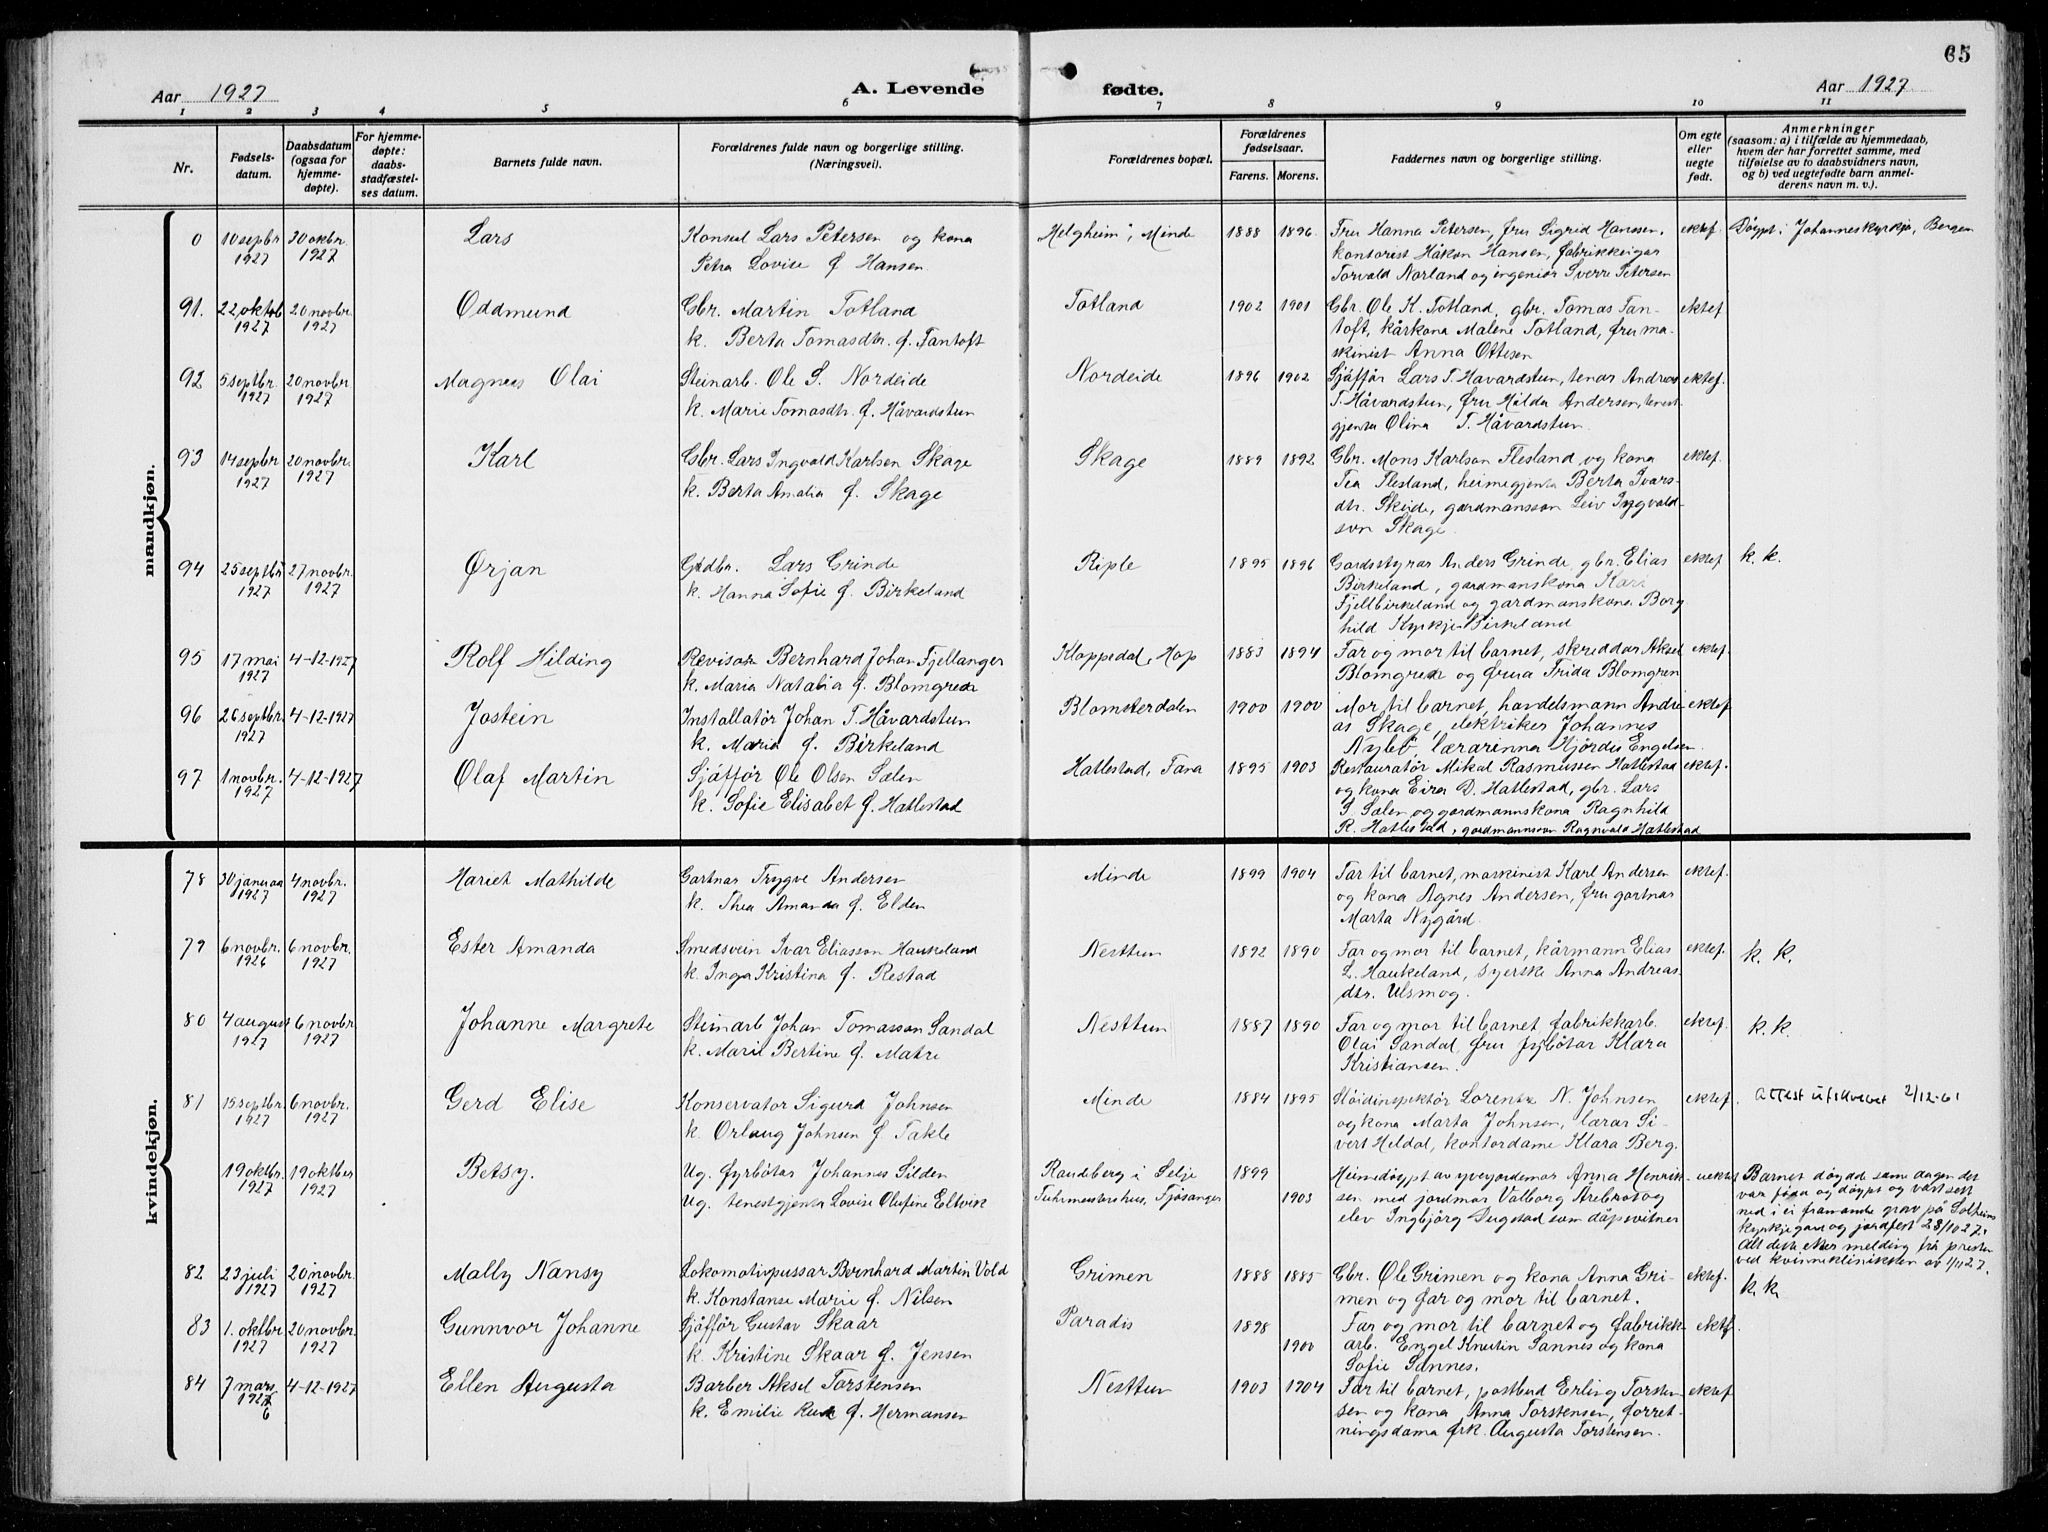 65
Aar 1927
A. Levende fødte.
Aar 1927.
1 2 3 4 5 6 7 8 9 10 11
Nr.
Fødsels-
datum.
Daabsdatum
(ogsaa for
hjemme-
døpte).
For hjemme-
døpte:
daabs-
stadfæstel-
ses datum.
Barnets fulde navn.
Forældrenes fulde navn og borgerlige stilling.
(Næringsvei).
Forældrenes bopæl.
Forældrenes
fødselsaar.
Farens. Morens.
Faddernes navn og borgerlige stilling.
Om egte
eller
uegte
født.
Anmerkninger
(saasom: a) i tilfælde av hjemmedaab,
hvem der har forrettet samme, med
tilføielse av to daabsvidners navn,
og b) ved uegtefødte barn anmel-
derens navn m. v.).
mandkjøn.
0 10 septbr 30 oktbr. Lars Konsul Lars Petersen og kona Helgheim, Minde 1888 1896 Fru Hanna Petersen, fru Sigrid Hanssen, ektef. Døypt i Johanneskyrkja, Bergen
1927 1927 Petra Lovise f. Hansen kontorist Håkon Hansen, fabrikkeigar
Torvald Norland og ingeniør Sverr Petersen
91. 22 oktob 20 novbr. Oddmund Gbr. Martin Totland Totland 1902 1901 Gbr. Ole K. Totland, gbr. Tomas Fan- ektef
1927 1927 k. Berta Tomasdtr. f. Fantoft toft, kårkona Malene Totland, fru ma-
skinist Anna Ottesen
92 5 septbr. 20 novbr. Magnus Olai Steinarb. Ole S. Nordeide Nordeide 1896 1902 Sjåfför Lars T. Håvardstun, tenar Andreas ektef.
1927 1927 k. Marie Tomasdtr. f. Håvardstun T. Håvardstun, fru Hilda Andersen, tenest-
gjenta Olina T. Håvardstun.
93 14 septbr 20 novbr. Karl Gbr. Lars Ingvald Karlsen Skage Skage 1889 1892 Gbr. Mons Karlson Flesland og kona ektef.
1927 1927 k. Berta Amalia f. Skage Tea Flesland, heimegjenta Berta Ivars-
dtr. Skeide, gardmansson Leiv Ingvald-
son Skage.
94 25 septbr 27 novbr. Ørjan Gardbr. Lars Grinde Riple 1895 1896 Gardsstyrar Anders Grinde, gbr. Elias ektef k. k.
1927 1927 k. Hanna Sofie f. Birkeland Birkeland, gardmanskona Kari
Fjellbirkeland og gardmanskona Borg
hild Kyrkje-Birkeland
95 17 mai 4-12-1927 Rolf Hilding Revisor Bernhard Johan Fjellanger Kloppedal, Hop 1883 1894 Far og mor til barnet, skreddar Aksel ektef.
1927 k. Maria Natalia f. Blomgren Blomgren og frua Frida Blomgren
96 26 septbr. 4-12-1927 Jostein Installatør Johan T. Håvardstun Blomsterdalen 1900 1900 Mor til barnet, handelsmann Andre- ektef
1927 k. Maria f. Birkeland as Skage, elektriker Johannes
Nybö, lærarinna Hjördis Engelsen.
97 1 novbr. 4-12-1927 Olaf Martin Sjåfför Ole Olsen Sælen Hatlestad, Fana 1895 1903 Restauratør Mikal Rasmussen Hatlestad ektef.
1927 k. Sofie Elisabet f. Hatlestad og kona Eira D. Hatlestad, gbr. Lars
S. Sælen og gardmannskona Ragnhild
R. Hatlestad, gardmannsson Ragnvald Hatlestad
kvindekjøn.
78 30 januar 4 novbr. Mariet Mathilde Gartnar Trygve Andersen Minde 1899 1904 Far til barnet, maskinist Karl Andersen ektef.
1927 1927 k. Thea Amanda f. Elden og kona Agnes Andersen, fru gartnar
Marta Nygård.
79 6 novbr. 6 novbr. Ester Amanda Smedsvein Ivar Eliasson Haukeland Nesttun 1892 1890 Far og mor til barnet, kårmann Elias ektef. k. k.
1926 1927 k. Inga Kristina f. Restad L. Haukeland, syerske Anna Andreas-
dtr. Ulsmog.
80 4 august 6 novbr. Johanne Margrete Steinarb Johan Tomasson Sandal Nesttun 1887 1890 Far og mor til barnet, fabrikkarb. ektef. k. k.
1927 1927 k. Marie Bertine f. Matre Olai Sandal, fru fyrbötar Klara
Kristiansen.
81 15 septbr. 6 novbr. Gerd Elise Konservator Sigurd Johnsen Minde 1884 1895 Skoginspektör Lorentz N. Johnsen ektef. Attest utskrevet 2/12-61
1927 1927 k. Orlaug Johnsen f. Takle og kona Marta Johnsen, lærar Si-
vert Heldal, kontordame Klara Berg.
19 oktbr. 19 oktber Betsy. Ug. fyrbötar Johannes Silden Raudeberg i Selje 1899 Heimedöypt av yverjordmor Anna Henrik- uektef Barnet döydde same dagen det
1927 1927 Ug. tenestgjenta Lovise Olufine Eltvik Fuhrmestershus, Fjösanger 1903 sen med jordmor Valborg Arebrot og var född og döypt og vart sett
elev Ingbjörg Dugstad som dåpsvitner ned i ei framande grav på Solheim
kyrkjegard og jordfest 28/10 27.
Alt dette etter melding frå presten
ved kvinneklinikken av 1/11 27.
82 23 juli 20 novbr. Mally Nansy Lokomotivpussar Bernhard Martin Vold Grimen 1888 1885 Gbr. Ole Grimen og kona Anna Gri- ektef. k. k
1927 1927 k. Konstanse Marie f. Nilsen men og far og mor til barnet.
83 1. oktbr 20 novbr. Gunnvor Johanne Sjåfför Gustav Skaar Paradis 1898 Far og mor til barnet og fabrikk- ektef.
1927 1927 k. Kristine Skaar f. Jensen 1900 arb. Engel Knutin Sannes og kona
Sofie Sannes.
84 7 mars 4-12-1927 Ellen Augusta Barber Aksel Torstensen Nesttun 1903 1904 Far til barnet, postbud Erling Torsten ektef
1926 k. Emilie f. Hermansen sen og kona Anna Torstensen, forret-
ningsdama frk. Augusta Torstensen.